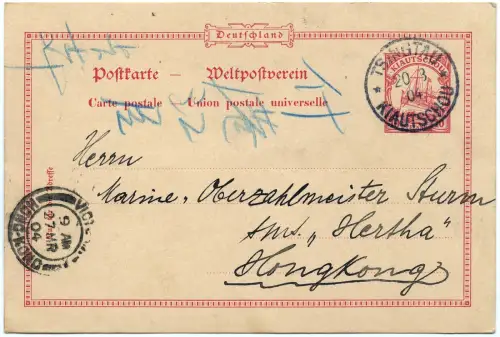 Deutschland
Postkarte — Weltpostverein
Carte postale — Union postale universelle
KIAUTSCHOU
TSINGTAU
20 3.
04
* KIAUTSCHOU *
Herrn
Marine-Oberzahlmeister Sturm
S.M.S. „Hertha"
Hongkong
VICTORIA
9 AM
27 MR
04
HONG-KONG